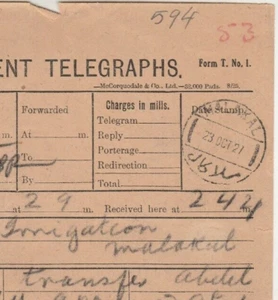 594
53
ENT TELEGRAPHS.
Form T. No. 1.
McCorquodale & Co., Ltd.—32,000 Pads. 8/20.
Forwarded Charges in mills. Date Stamp
At m. Telegram
m. Reply
To Porterage
Redirection
By Total
MALAKAL
23 OCT. 21
at 29 m. Received here at 244
Irrigation
malakal
transfer abdel